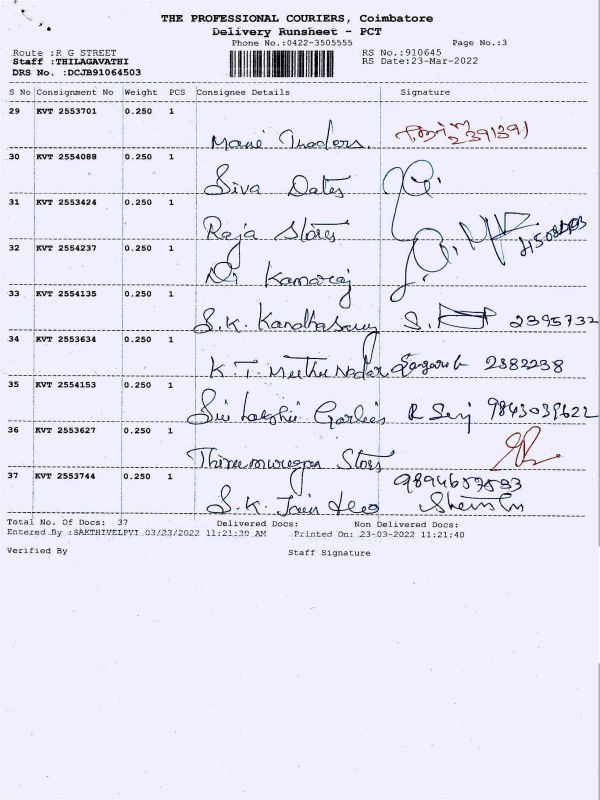 THE PROFESSIONAL COURIERS, Coimbatore
Delivery Runsheet - PCT
Phone No.:0422-3505555 Page No.:3
Route :R G STREET RS No.:910645
Staff :THILAGAVATHI RS Date:23-Mar-2022
DRS No. :DCJB91064503
S No Consignment No Weight PCS Consignee Details Signature
29 KVT 2553701 0.250 1
Traders. 2391391
30 KVT 2554088 0.250 1
Siva Dates
31 KVT 2553424 0.250 1
Raja Stores
32 KVT 2554237 0.250 1
Kamaraj
33 KVT 2554135 0.250 1
S.K. Kandhasamy S. 2395732
34 KVT 2553634 0.250 1
K.T. Muthu Nadar 2382238
35 KVT 2554153 0.250 1
Sri Lakshmi R
36 KVT 2553627 0.250 1
Thirumurugan Stores
37 KVT 2553744 0.250 1
S.K. Jain
Total No. Of Docs: 37 Delivered Docs: Non Delivered Docs:
Entered By :SAKTHIVELPVI 03/23/2022 11:21:30 AM Printed On: 23-03-2022 11:21:40
Verified By Staff Signature